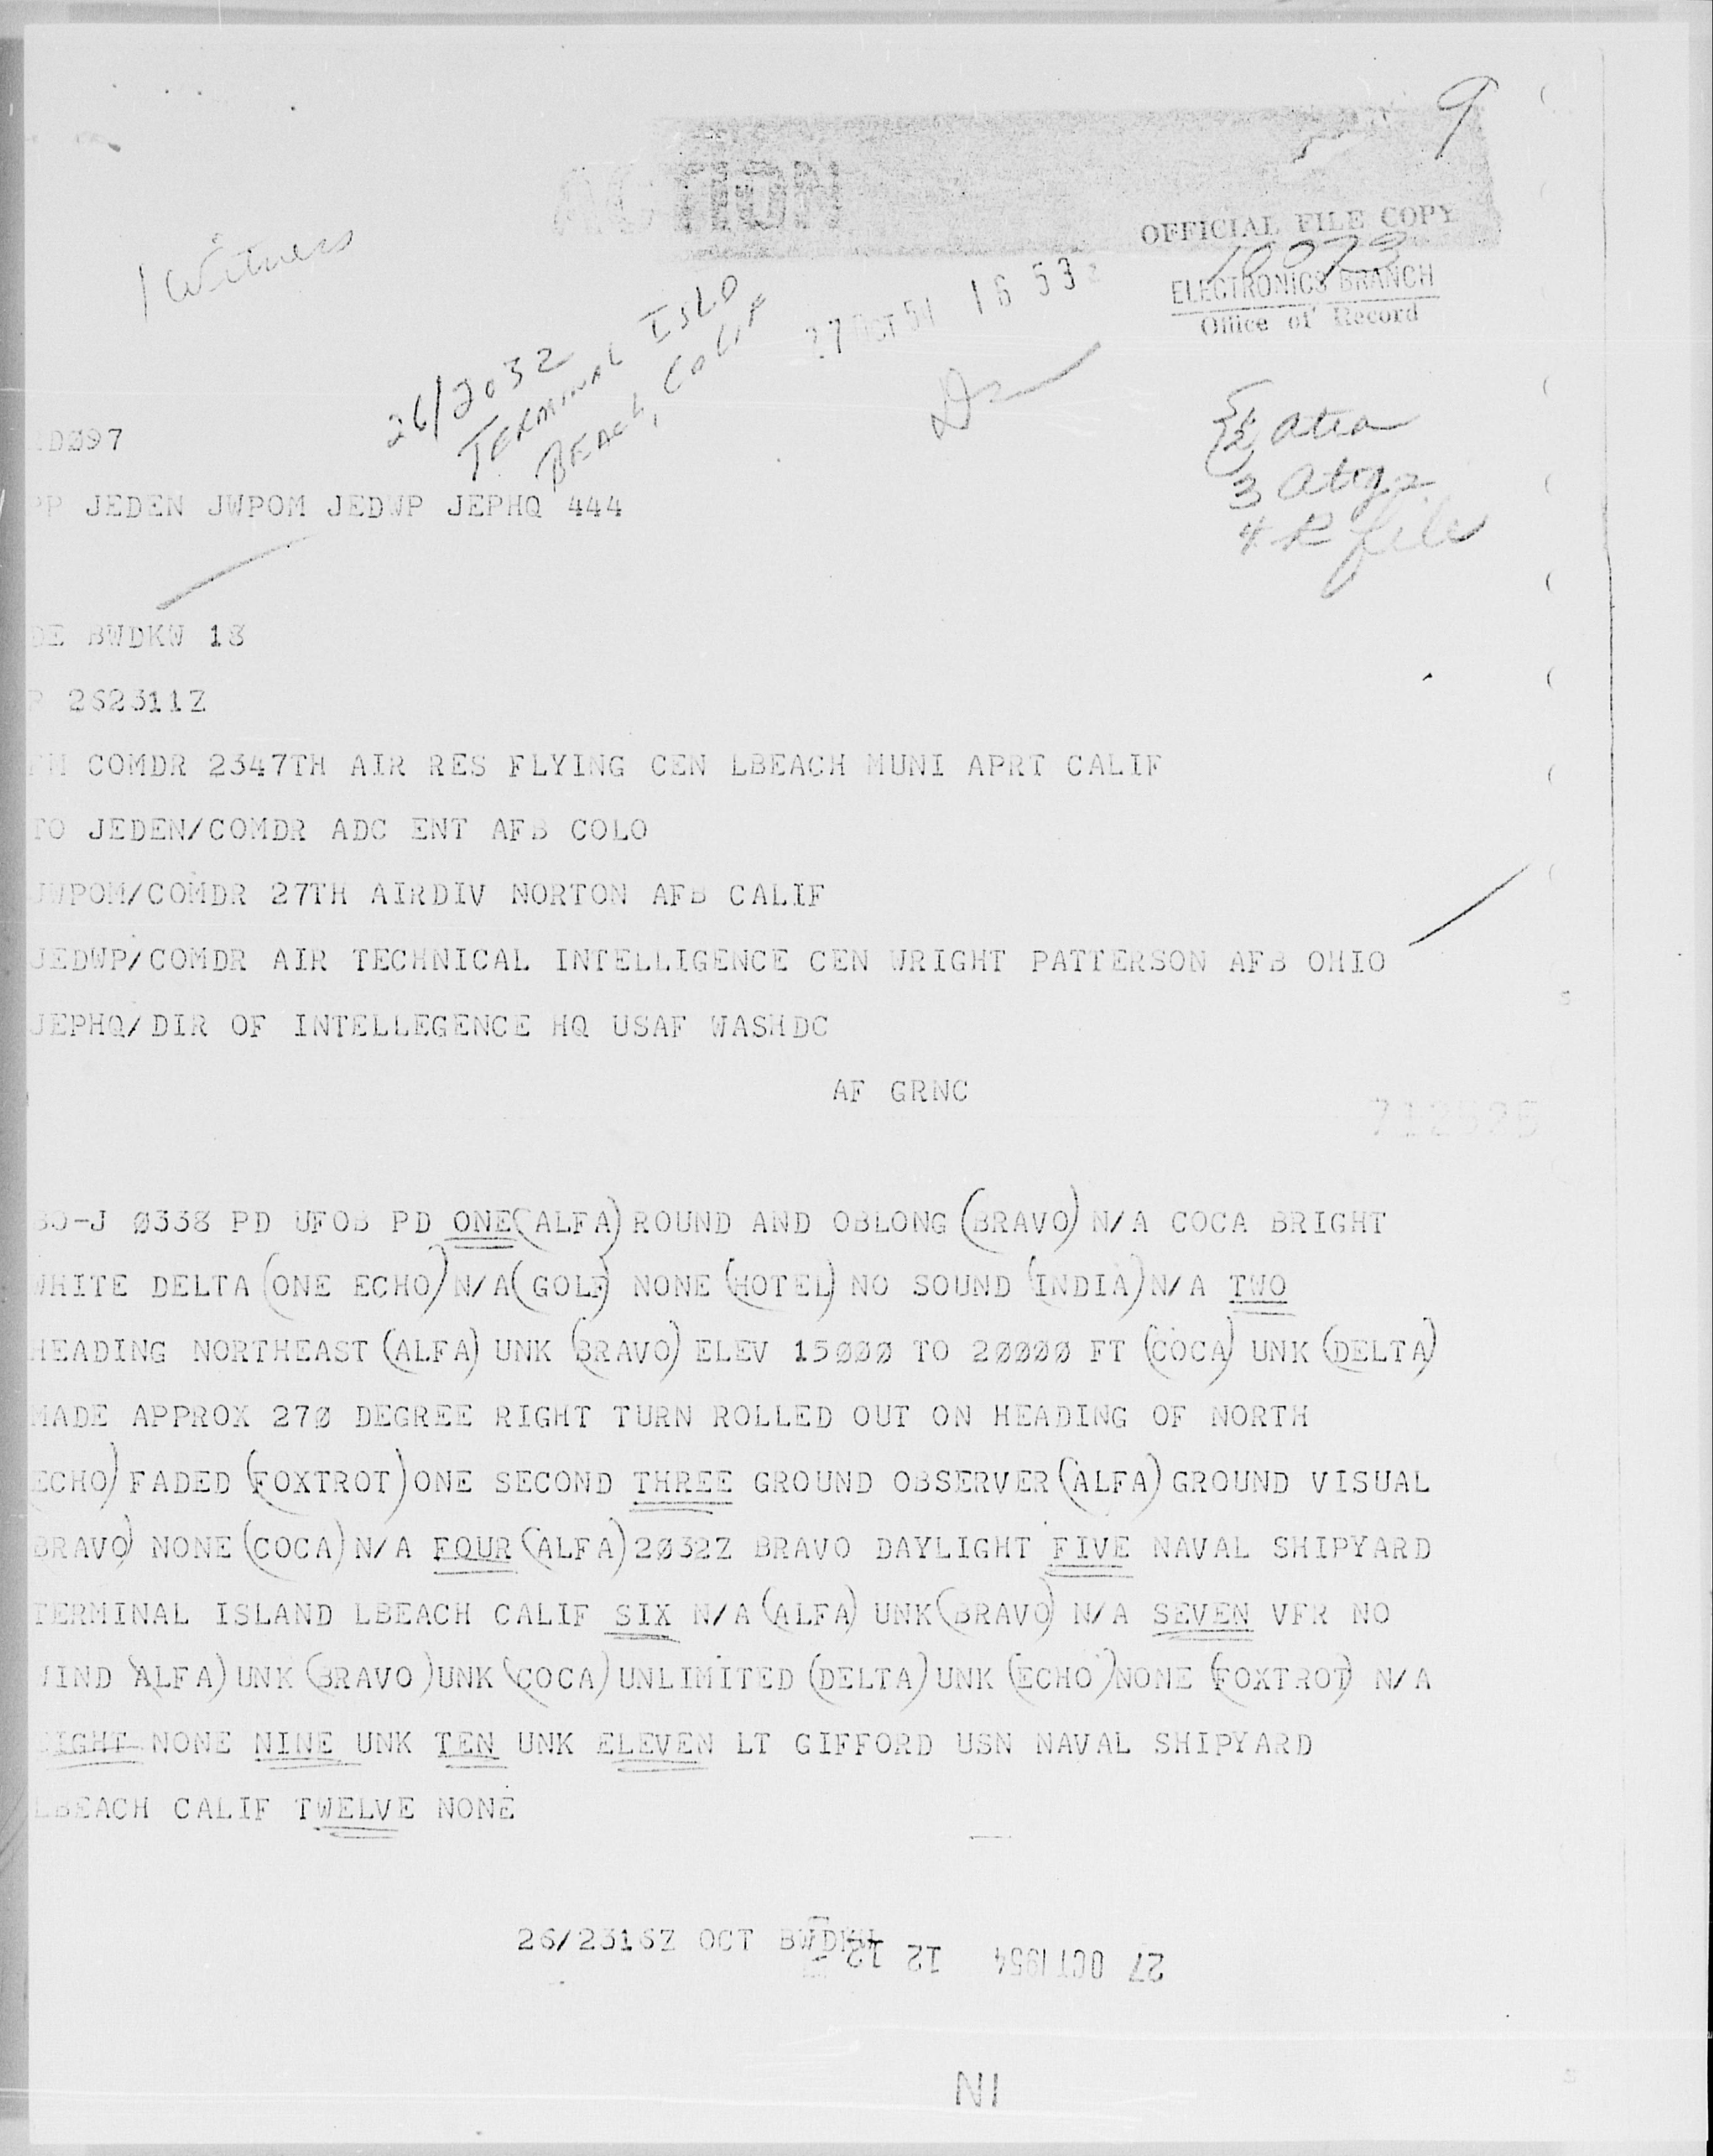 9
ACTION
OFFICIAL FILE COPY
10073
ELECTRONICS BRANCH
Office of Record
1 Witness
27 OCT 54 16 53z
26/2032
TERMINAL ISLD
BEACH, CALIF
DØ97
PP JEDEN JWPOM JEDWP JEPHQ 444
3
4 R file
DE BWDKW 18
P 262311Z
FM COMDR 2347TH AIR RES FLYING CEN LBEACH MUNI APRT CALIF
TO JEDEN/COMDR ADC ENT AFB COLO
JWPOM/COMDR 27TH AIRDIV NORTON AFB CALIF
JEDWP/COMDR AIR TECHNICAL INTELLIGENCE CEN WRIGHT PATTERSON AFB OHIO
JEPHQ/DIR OF INTELLEGENCE HQ USAF WASHDC
AF GRNC
BO-J Ø338 PD UFOB PD ONE (ALFA) ROUND AND OBLONG (BRAVO) N/A COCA BRIGHT
WHITE DELTA (ONE ECHO) N/A (GOLF) NONE (HOTEL) NO SOUND (INDIA) N/A TWO
HEADING NORTHEAST (ALFA) UNK (BRAVO) ELEV 15ØØØ TO 2ØØØØ FT (COCA) UNK (DELTA)
MADE APPROX 27Ø DEGREE RIGHT TURN ROLLED OUT ON HEADING OF NORTH
ECHO) FADED (FOXTROT) ONE SECOND THREE GROUND OBSERVER (ALFA) GROUND VISUAL
BRAVO) NONE (COCA) N/A FOUR (ALFA) 2Ø32Z BRAVO DAYLIGHT FIVE NAVAL SHIPYARD
TERMINAL ISLAND LBEACH CALIF SIX N/A (ALFA) UNK (BRAVO) N/A SEVEN VFR NO
WIND ALFA) UNK (BRAVO) UNK (COCA) UNLIMITED (DELTA) UNK (ECHO) NONE (FOXTROT) N/A
EIGHT NONE NINE UNK TEN UNK ELEVEN LT GIFFORD USN NAVAL SHIPYARD
LBEACH CALIF TWELVE NONE
26/2316Z OCT BWDKW
27 OCT 1954 12 12
IN